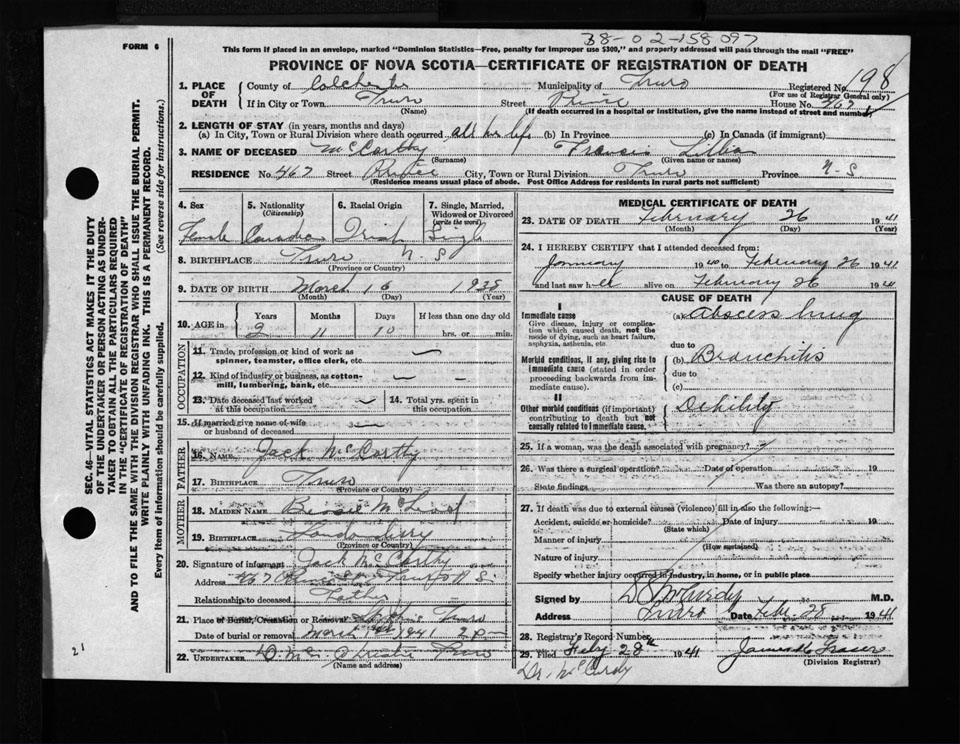 38-02-158097
FORM 6
This form if placed in an envelope, marked "Dominion Statistics—Free, penalty for improper use $300," and properly addressed will pass through the mail "FREE"
PROVINCE OF NOVA SCOTIA—CERTIFICATE OF REGISTRATION OF DEATH
1. PLACE OF DEATH
County of Colchester Municipality of Truro Registered No. 98
(For use of Registrar General only)
If in City or Town Truro Street Prince House No. 467
(Name) (If death occurred in a hospital or institution, give the name instead of street and number)
2. LENGTH OF STAY (in years, months and days)
(a) In City, Town or Rural Division where death occurred all her life (b) In Province (c) In Canada (if immigrant)
3. NAME OF DECEASED McCarthy Francis Lillian
(Surname) (Given name or names)
RESIDENCE No. 467 Street Prince City, Town or Rural Division Truro Province N-S
(Residence means usual place of abode. Post Office Address for residents in rural parts not sufficient)
4. Sex 5. Nationality (Citizenship) 6. Racial Origin 7. Single, Married, Widowed or Divorced (write the word)
Female Canadian Irish Single
8. BIRTHPLACE Truro N-S
(Province or Country)
9. DATE OF BIRTH March 16 1938
(Month) (Day) (Year)
10. AGE in Years Months Days If less than one day old
2 11 10 hrs. or min.
OCCUPATION
11. Trade, profession or kind of work as spinner, teamster, office clerk, etc. —
12. Kind of industry or business, as cotton-mill, lumbering, bank, etc. —
13. Date deceased last worked at this occupation — 14. Total yrs. spent in this occupation
15. If married give name of wife or husband of deceased —
FATHER
16. NAME Jack McCarthy
17. BIRTHPLACE Truro
(Province or Country)
MOTHER
18. MAIDEN NAME Bessie McLeod
19. BIRTHPLACE
(Province or Country)
20. Signature of informant Jack McCarthy
Address 467 Prince St Truro N S.
Relationship to deceased Father
21. Place of Burial, Cremation or Removal Truro
Date of burial or removal March 1st 1941 2 pm
22. UNDERTAKER Truro
(Name and address)
MEDICAL CERTIFICATE OF DEATH
23. DATE OF DEATH February 26 1941
(Month) (Day) (Year)
24. I HEREBY CERTIFY that I attended deceased from:
January 1940 to February 26 1941
and last saw h er alive on February 26 1941
CAUSE OF DEATH
I
Immediate cause
Give disease, injury or complication which caused death, not the mode of dying, such as heart failure, asphyxia, asthenia, etc.
(a) Abscess lung
due to
Morbid conditions, if any, giving rise to immediate cause (stated in order proceeding backwards from immediate cause).
(b) Bronchitis
due to
(c)
II
Other morbid conditions (if important) contributing to death but not causally related to immediate cause.
Debility
25. If a woman, was the death associated with pregnancy?
26. Was there a surgical operation? Date of operation 19
State findings Was there an autopsy?
27. If death was due to external causes (violence) fill in also the following:—
Accident, suicide or homicide? Date of injury 19
(State which)
Manner of injury
(How sustained)
Nature of injury
Specify whether injury occurred in industry, in home, or in public place
Signed by McCurdy M.D.
Address Truro Date Feb. 28 1941
28. Registrar's Record Number
29. Filed Feby 28 1941 Fraser
(Division Registrar)
Dr. McCurdy
SEC. 46—VITAL STATISTICS ACT MAKES IT THE DUTY
OF THE UNDERTAKER OR PERSON ACTING AS UNDERTAKER
TO OBTAIN ALL THE PARTICULARS REQUIRED
IN THE "CERTIFICATE OF REGISTRATION OF DEATH"
AND TO FILE THE SAME WITH THE DIVISION REGISTRAR WHO SHALL ISSUE THE BURIAL PERMIT.
WRITE PLAINLY WITH UNFADING INK. THIS IS A PERMANENT RECORD.
Every item of information should be carefully supplied. (See reverse side for instructions.)
21